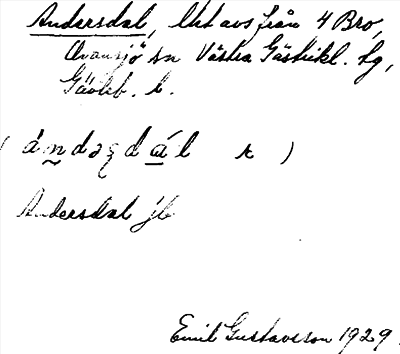 Andersdal, lht avs från 4 Bro,
Ovansjö sn Västra Gästrikl. hg,
Gävleb. l.
Andersdal jb
Emil Gustavsson 1929.